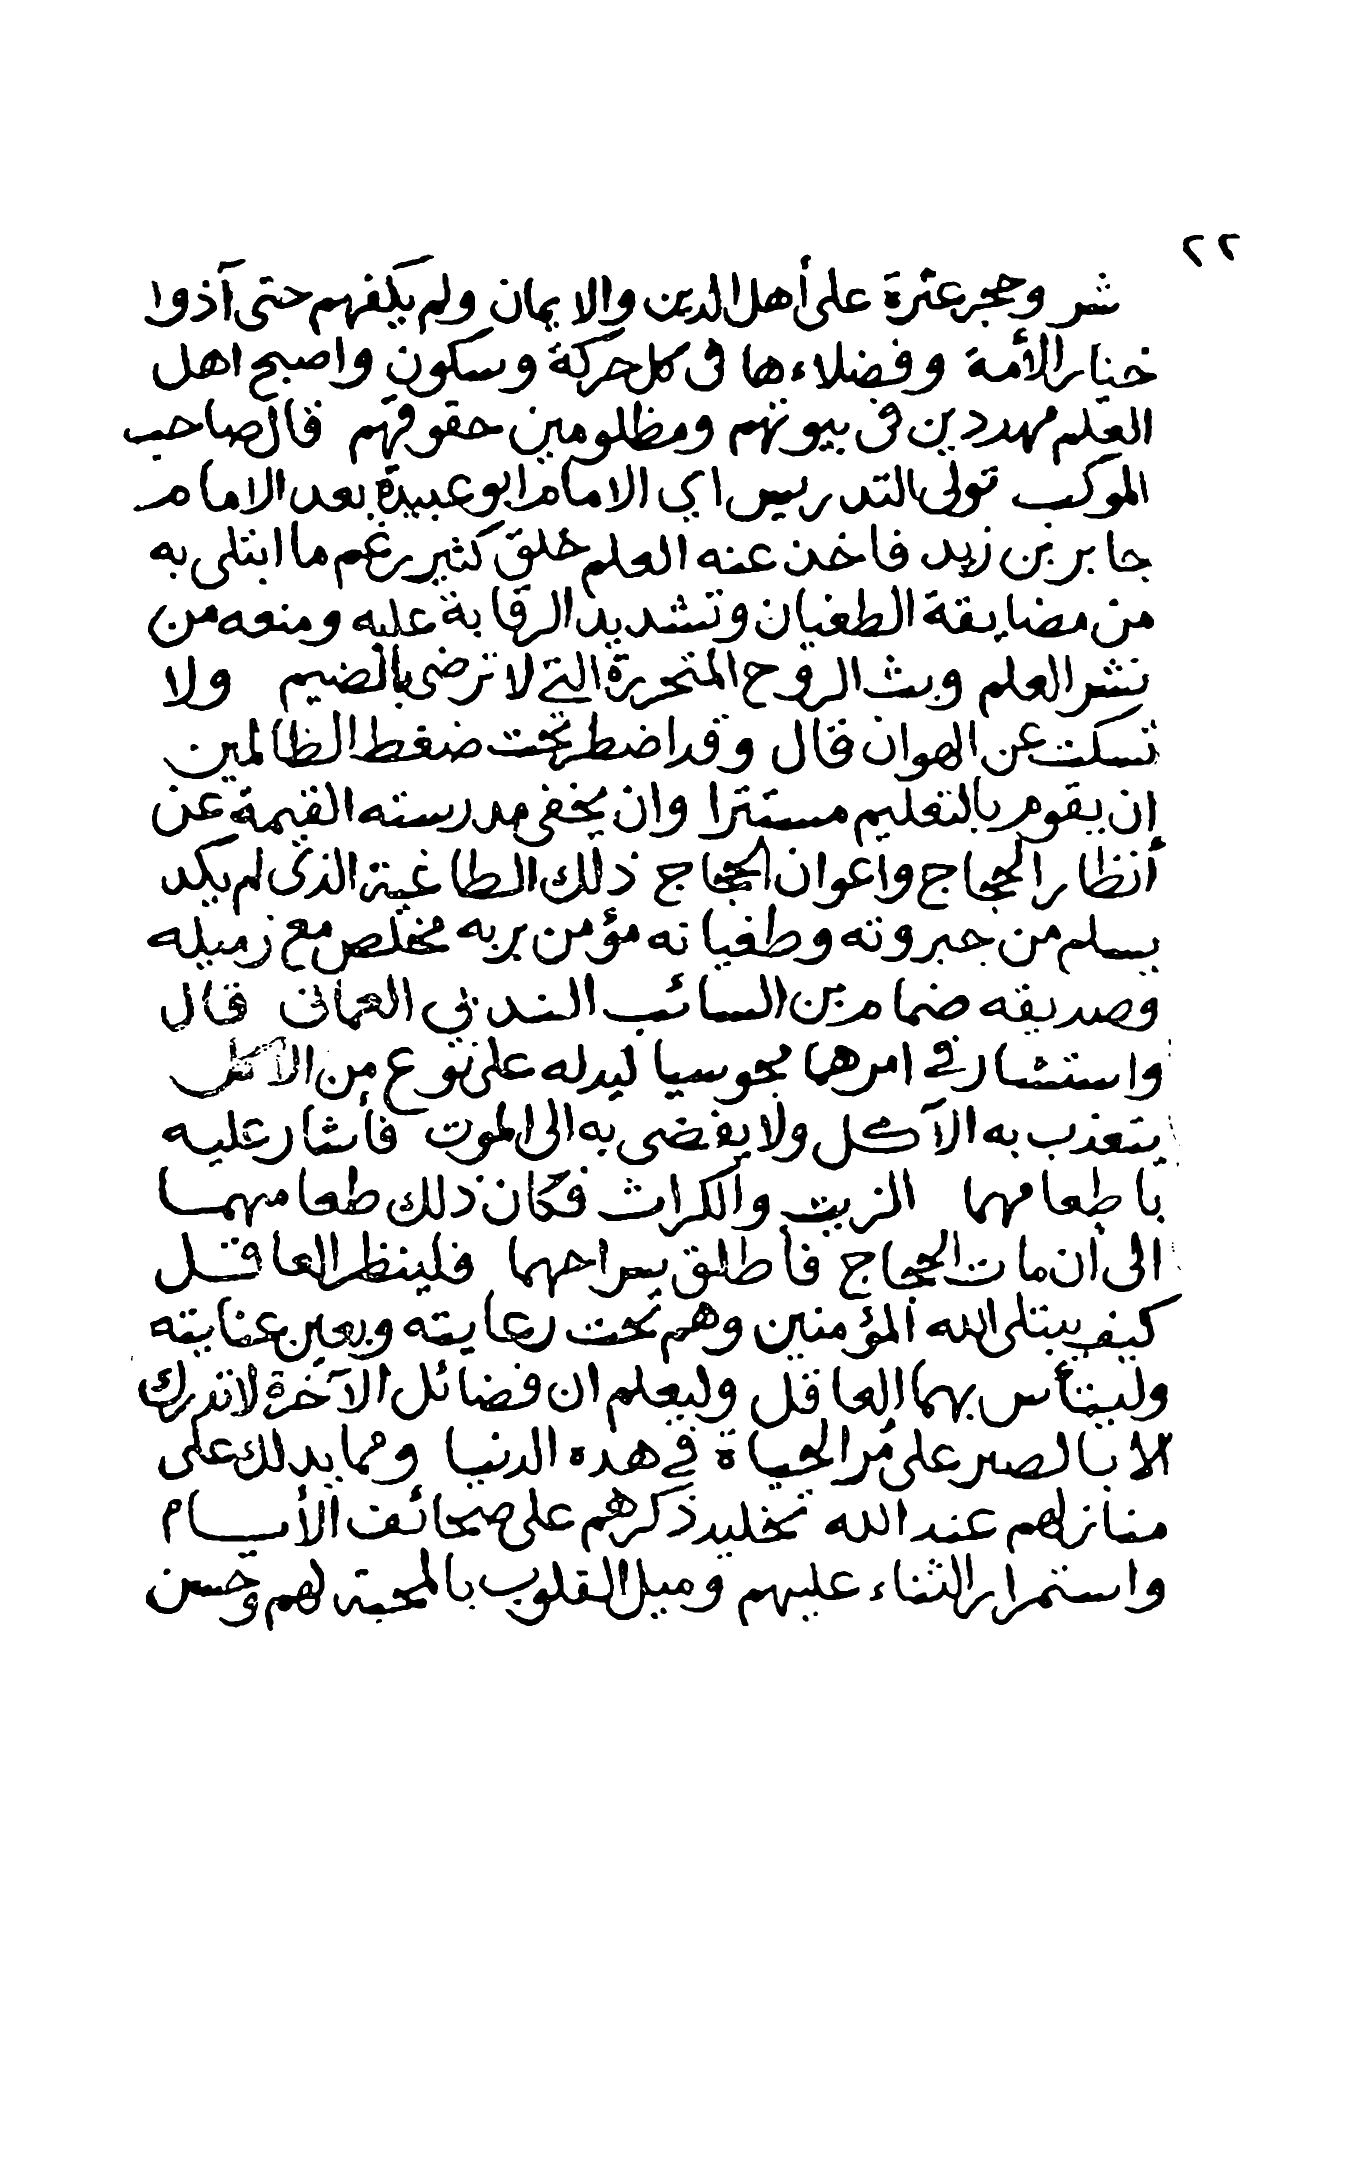 ٢٢
شر وحجر عثرة على أهل الدين والايمان ولم يكفهم حتى آذوا
خيار الأمة وفضلاءها في كل حركة وسكون واصبح اهل
العلم مهددين في بيوتهم ومظلومين حقوقهم قال صاحب
الموكب تولى التدريس اي الامام ابو عبيدة بعد الامام
جابر بن زيد فاخذ عنه العلم خلق كثير رغم ما ابتلى به
من مضايقة الطغيان وتشديد الرقابة عليه ومنعه من
نشر العلم وبث الروح المتحررة التي لا ترضى بالضيم ولا
تسكت عن الهوان قال وقد اضطر تحت ضغط الظالمين
ان يقوم بالتعليم مستترا وان يخفى مدرسته القيمة عن
أنظار الحجاج واعوان الحجاج ذلك الطاغية الذى لم يكد
يسلم من جبروته وطغيانه مؤمن بربه مخلص مع زميله
وصديقه ضمام بن السائب الندبي العماني قال
واستشار في امرهما مجوسيا ليدله على نوع من الاكل
يتعذب به الآكل ولا يفضى به الى الموت فأشار عليه
باطعامهما الزيت والكراث فكان ذلك طعامهمـا
الى أن مات الحجاج فأطلق سراحهما فلينظر العاقـل
كيف يبتلى الله المؤمنين وهم تحت رعايته وبعين عنايته
وليتأس بهما العاقل وليعلم ان فضائل الآخرة لا تدرك
الا بالصبر على مُر الحياة في هذه الدنيا ومما يدلك على
منازلهم عند الله تخليد ذكرهم على صحائف الأيـام
واستمرار الثناء عليهم وميل القلوب بالمحبة لهم وحسن